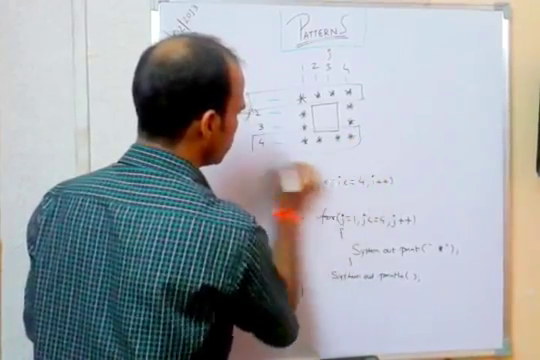 PATTERNS
j
1 2 3 4
* * * *
2 * *
3 * *
4 * * * *
j<=4, i++)
for(j=1, j<=4, j++)
{
System.out.print("*");
}
System.out.println();
}